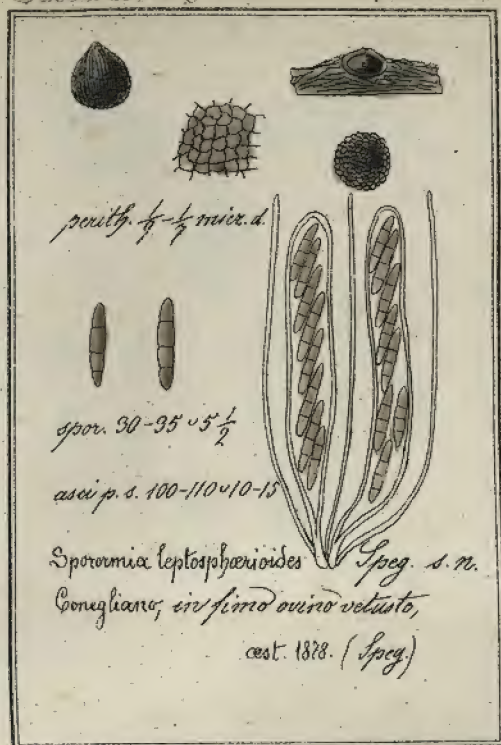 perith. ½-⅓ micr. d.
spor. 30-35 ᴗ 5 ½
asci p. s. 100-110 ᴗ 10-15
Sporormia leptosphærioides Speg. s. n.
Conegliano, in fimo ovino vetusto,
æst. 1878. (Speg.)